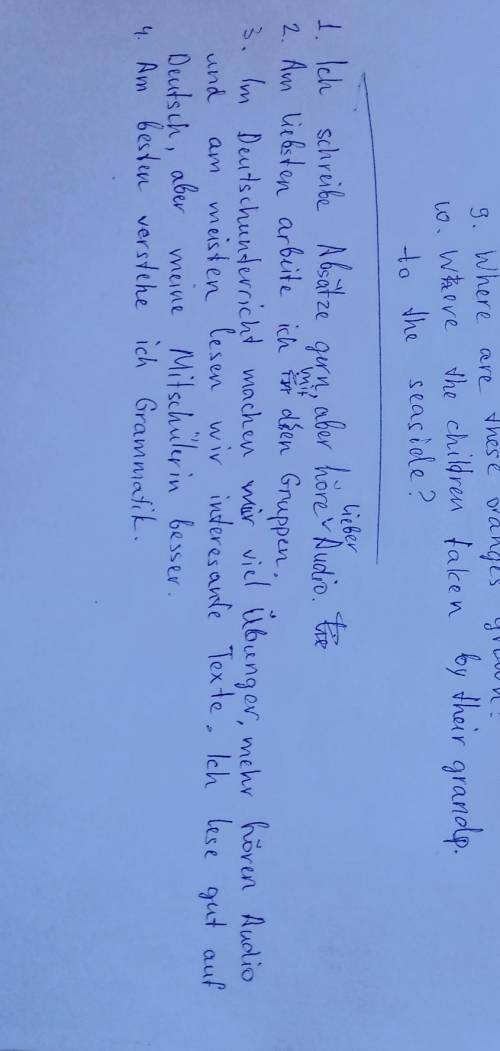 9. Where are these oranges grown?
10. Where the children taken by their grandp.
to the seaside?
1. Ich schreibe Absätze gern, aber höre lieber Audio.
2. Am liebsten arbeite ich mit den Gruppen.
3. Im Deutschunterricht machen wir viel Übunger, mehr hören Audio
und am meisten lesen wir interesante Texte. Ich lese gut auf
Deutsch, aber meine Mitschülerin besser.
4. Am besten verstehe ich Grammatik.